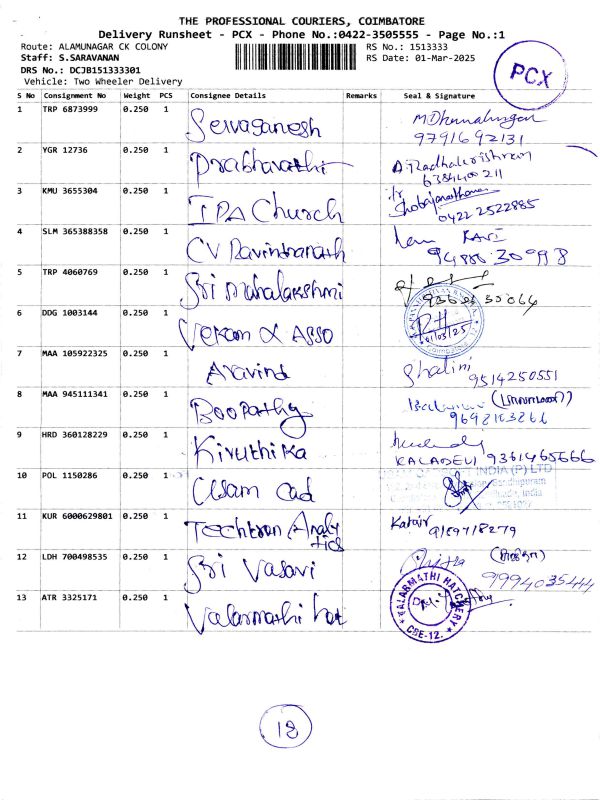 THE PROFESSIONAL COURIERS, COIMBATORE
Delivery Runsheet - PCX - Phone No.:0422-3505555 - Page No.:1
Route: ALAMUNAGAR CK COLONY
RS No.: 1513333
Staff: S.SARAVANAN
RS Date: 01-Mar-2025
DRS No.: DCJB151333301
Vehicle: Two Wheeler Delivery
PCX
S No Consignment No Weight PCS Consignee Details Remarks Seal & Signature
1 TRP 6873999 0.250 1 Sewaganesh
9791692131
2 YGR 12736 0.250 1 Prabhavathi A. Radhakrishnan
6384400211
3 KMU 3655304 0.250 1 IPA Church
0422 2522885
4 SLM 365388358 0.250 1 CV Ravindranath RAVI
94886 30998
5 TRP 4060769 0.250 1 Sri Mahalakshmi
6 DDG 1003144 0.250 1 & Asso
01/03/25
7 MAA 105922325 0.250 1 Aravind Shalini
9514250551
8 MAA 945111341 0.250 1 Boopathy
9 HRD 360128229 0.250 1 Kiruthika
KALADEVI 9361465666
10 POL 1150286 0.250 1 Cad
INDIA (P) LTD
11 KUR 6000629801 0.250 1 Techtran Analy
tics
9159718279
12 LDH 700498535 0.250 1 Sri Vasavi
9994035444
13 ATR 3325171 0.250 1 Valarmathi hat
VALARMATHI HATCHERY
CBE-12.